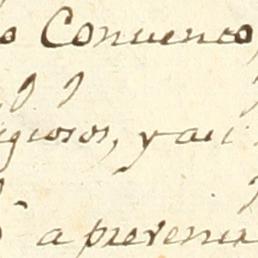 o Convento,
giosos, y asi
a prevenir